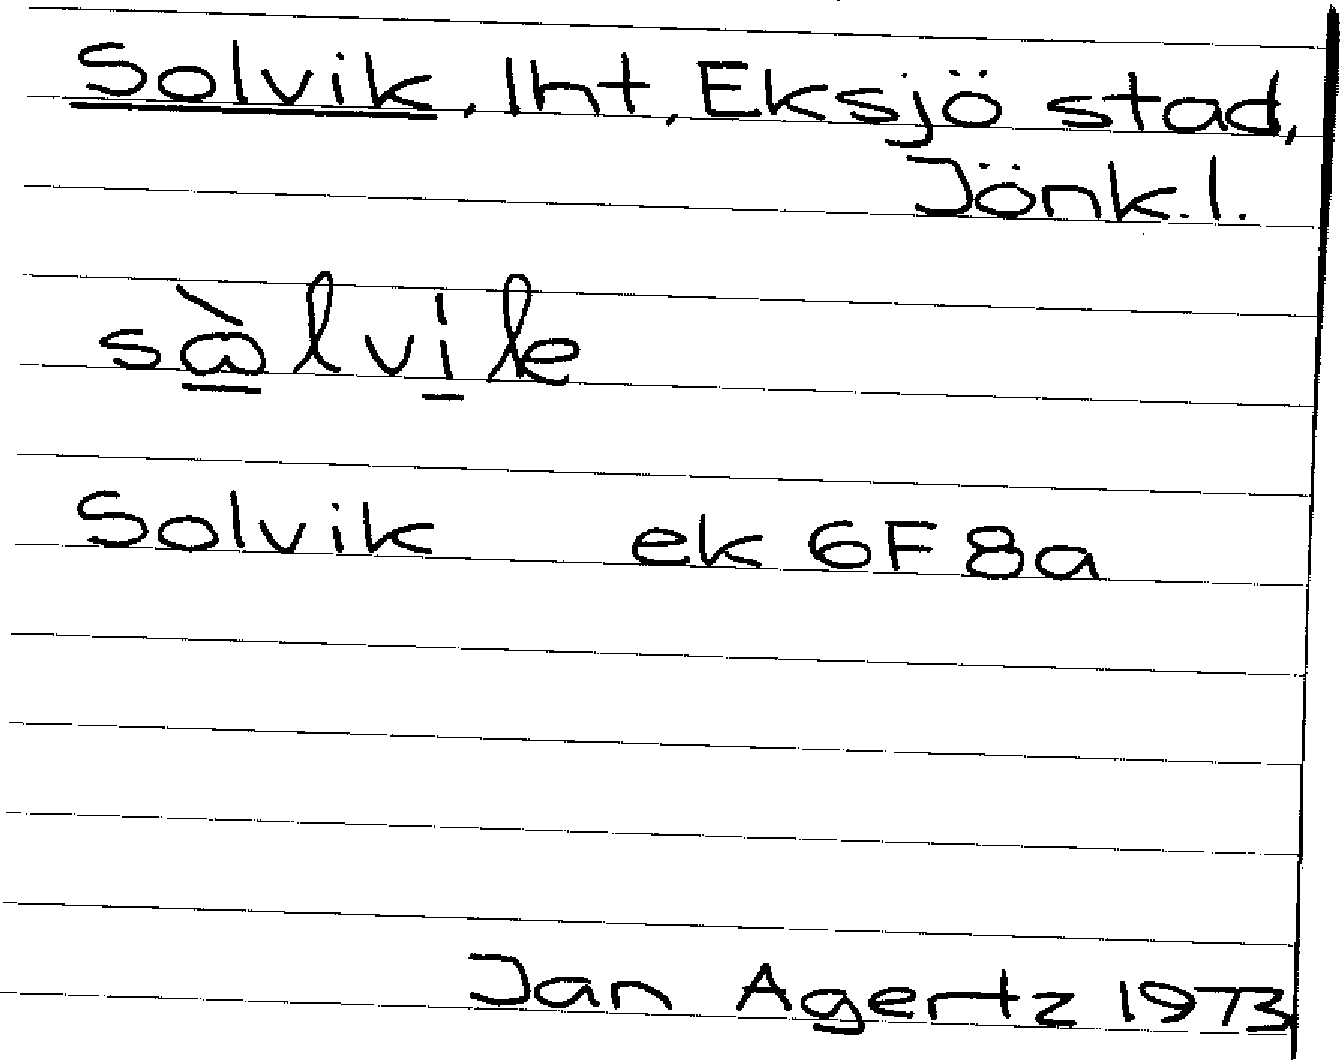 Solvik, Int, Eksjö stad,
Jönk.l.
sàlvik
Solvik ek 6F8a
Jan Agertz 1973